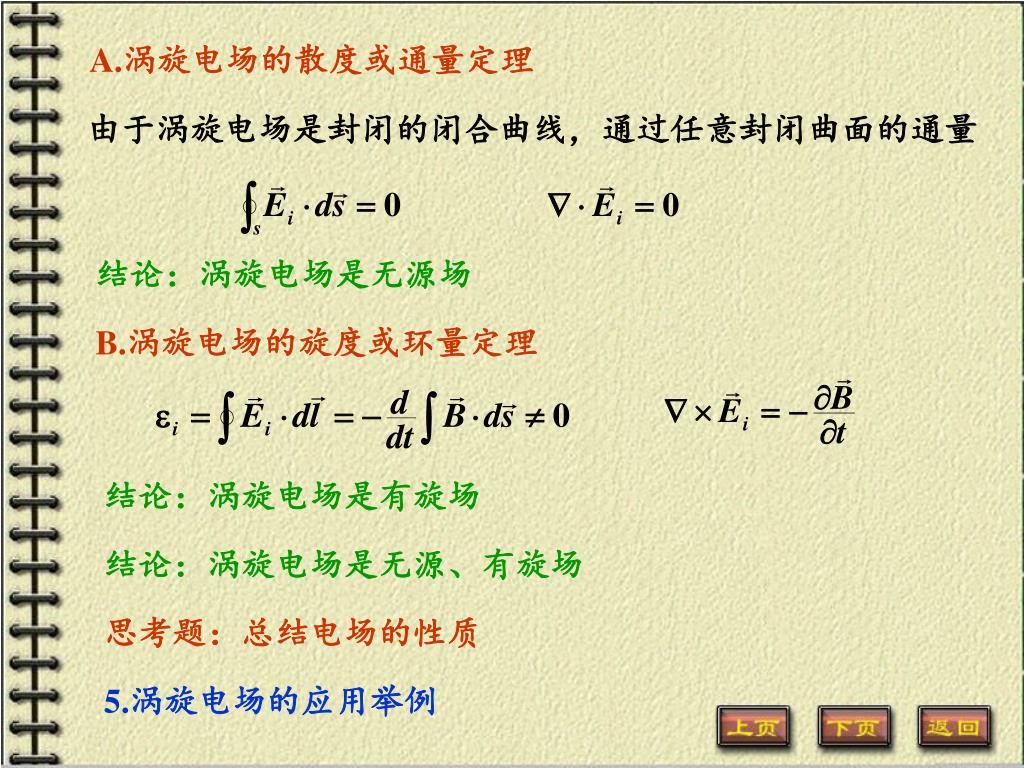 A.涡旋电场的散度或通量定理
由于涡旋电场是封闭的闭合曲线，通过任意封闭曲面的通量
$\oint_s \vec{E}_i \cdot d\vec{s} = 0$ $\nabla \cdot \vec{E}_i = 0$
结论：涡旋电场是无源场
B.涡旋电场的旋度或环量定理
$\varepsilon_i = \oint \vec{E}_i \cdot d\vec{l} = -\frac{d}{dt} \int \vec{B} \cdot d\vec{s} \neq 0$ $\nabla \times \vec{E}_i = -\frac{\partial \vec{B}}{\partial t}$
结论：涡旋电场是有旋场
结论：涡旋电场是无源、有旋场
思考题：总结电场的性质
5.涡旋电场的应用举例
上页 下页 返回